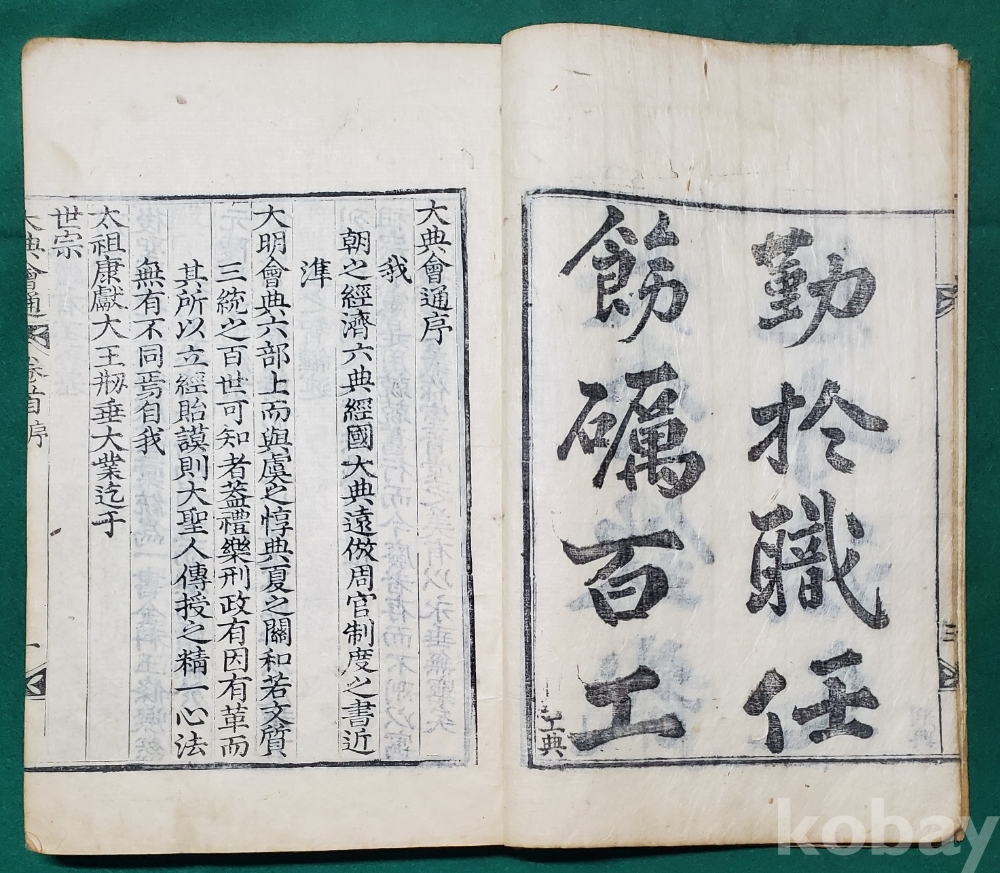 勤於職任
飭礪百工
工典
大典會通序
我
朝之經濟六典經國大典遠倣周官制度之書近
準
大明會典六部上而與虞之惇典夏之關和若文質
三統之百世可知者蓋禮樂刑政有因有革而
其所以立經貽謨則大聖人傳授之精一心法
無有不同焉自我
太祖康獻大王刱垂大業迄于
世宗
大典會通 卷首 序 一
kobay